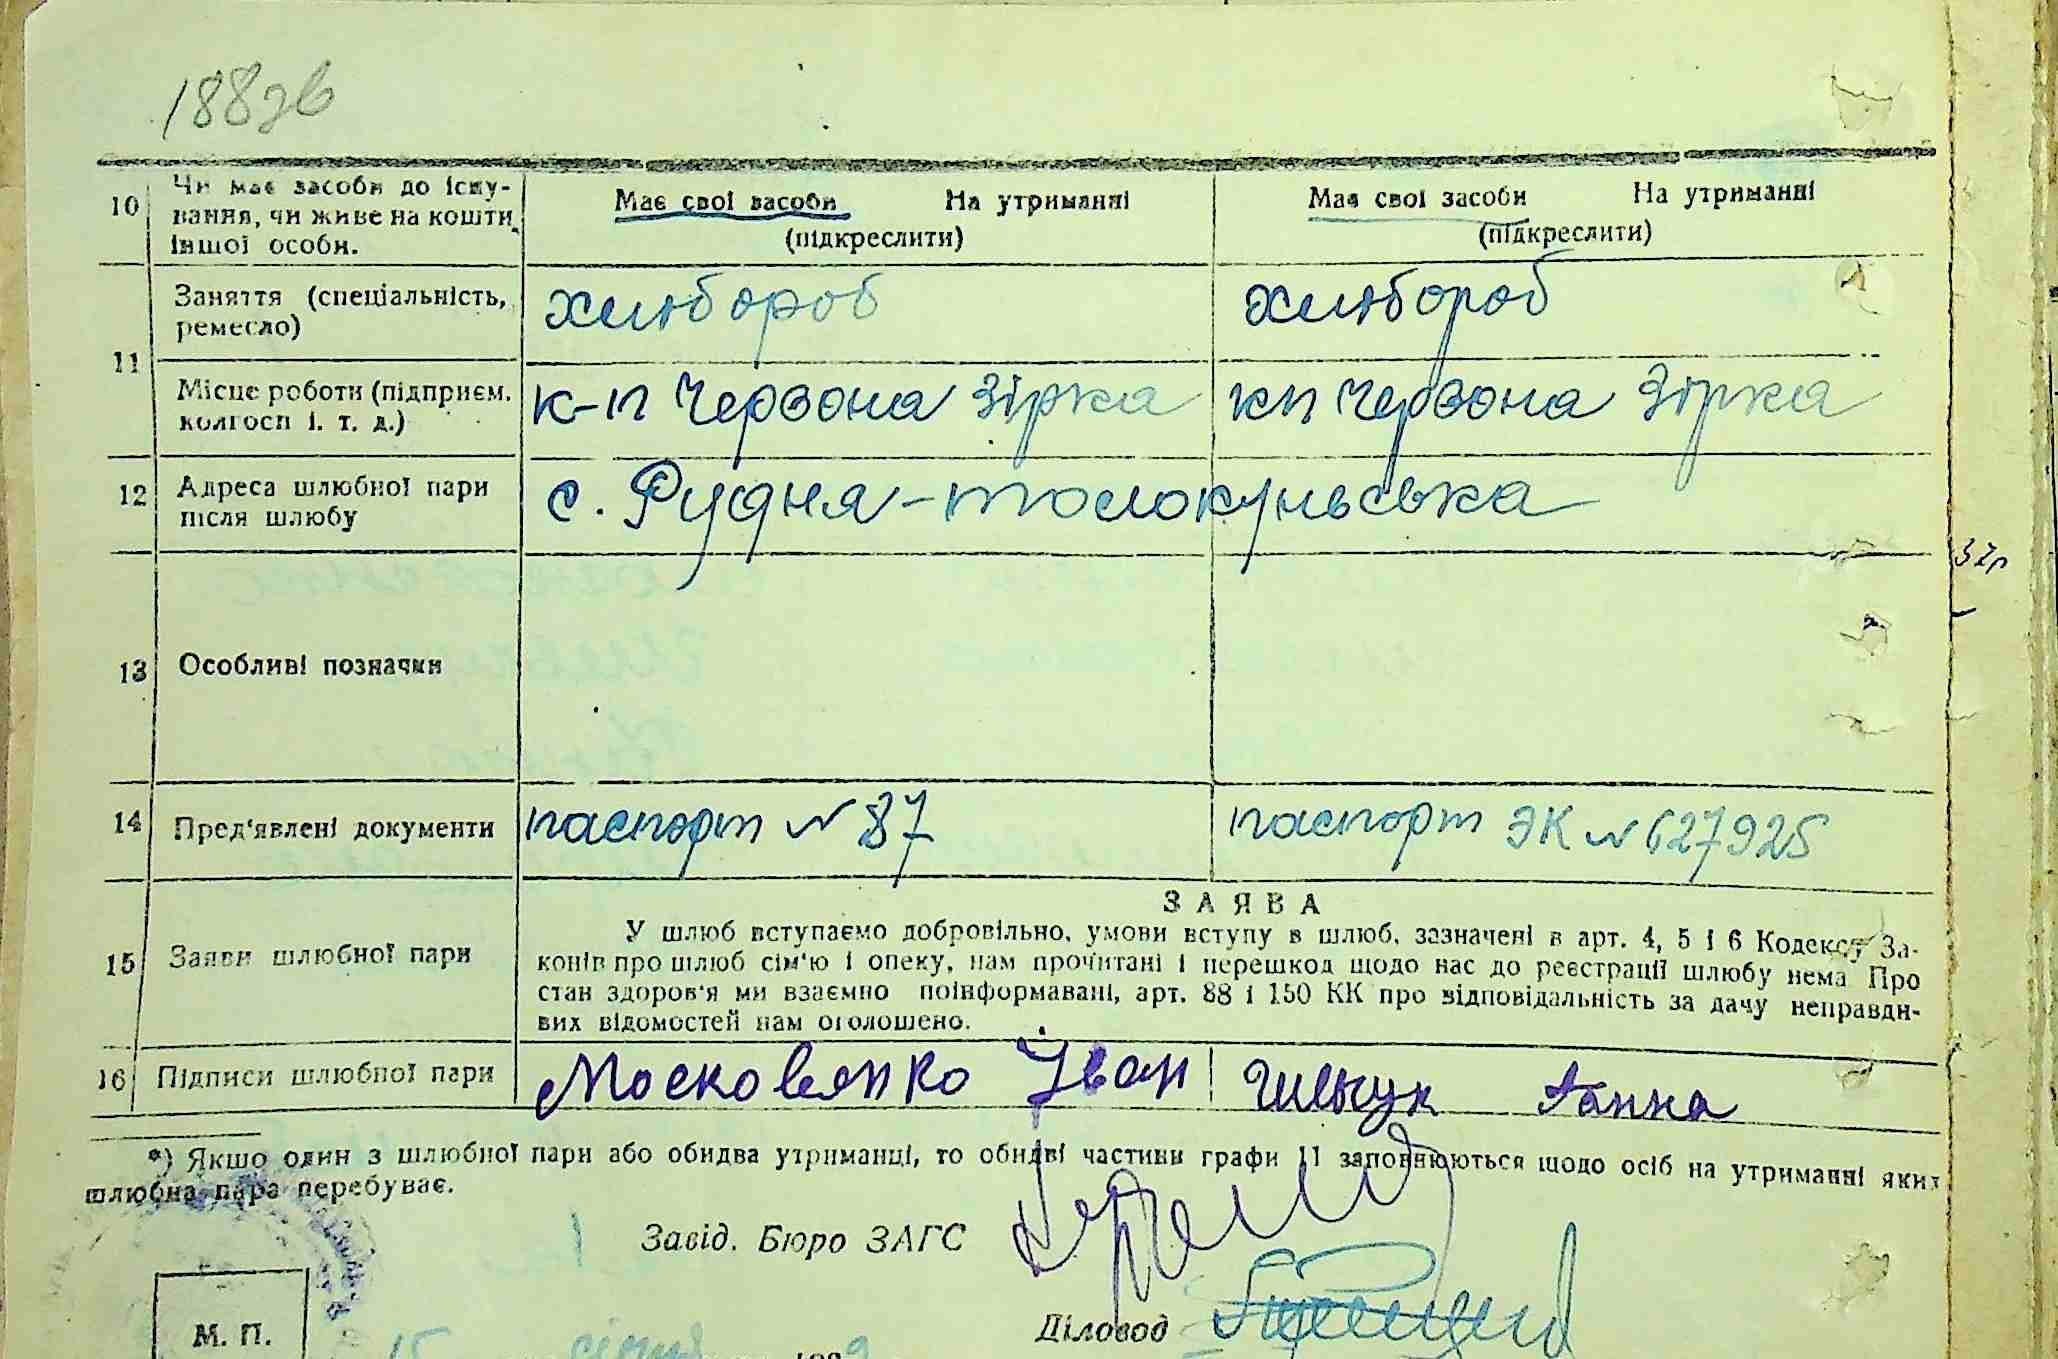 188зв
10 Чи має засоби до існу- Має свої засоби На утриманні Має свої засоби На утриманні
вання, чи живе на кошти (підкреслити) (підкреслити)
іншої особи.
11 Заняття (спеціальність, хлібороб хлібороб
ремесло)
Місце роботи (підприєм. к-п Червона Зірка кп Червона Зірка
колгосп і. т. д.)
12 Адреса шлюбної пари с. Рудня-толокунська
після шлюбу
13 Особливі позначки
14 Пред'явлені документи паспорт № 87 паспорт ЭК № 627925
ЗАЯВА
15 Заяви шлюбної пари У шлюб вступаємо добровільно, умови вступу в шлюб, зазначені в арт. 4, 5 і 6 Кодексу За-
конів про шлюб сім'ю і опеку, нам прочитані і перешкод щодо нас до реєстрації шлюбу нема Про
стан здоров'я ми взаємно поінформавані, арт. 88 і 150 КК про відповідальність за дачу неправди-
вих відомостей нам оголошено.
16 Підписи шлюбної пари Московенко Іван Шевчук Ганна
*) Якшо один з шлюбної пари або обидва утриманці, то обидві частини графи 11 заповнюються щодо осіб на утриманні яких
шлюбна пара перебуває.
Завід. Бюро ЗАГС
Діловод
М. П.
15 січня